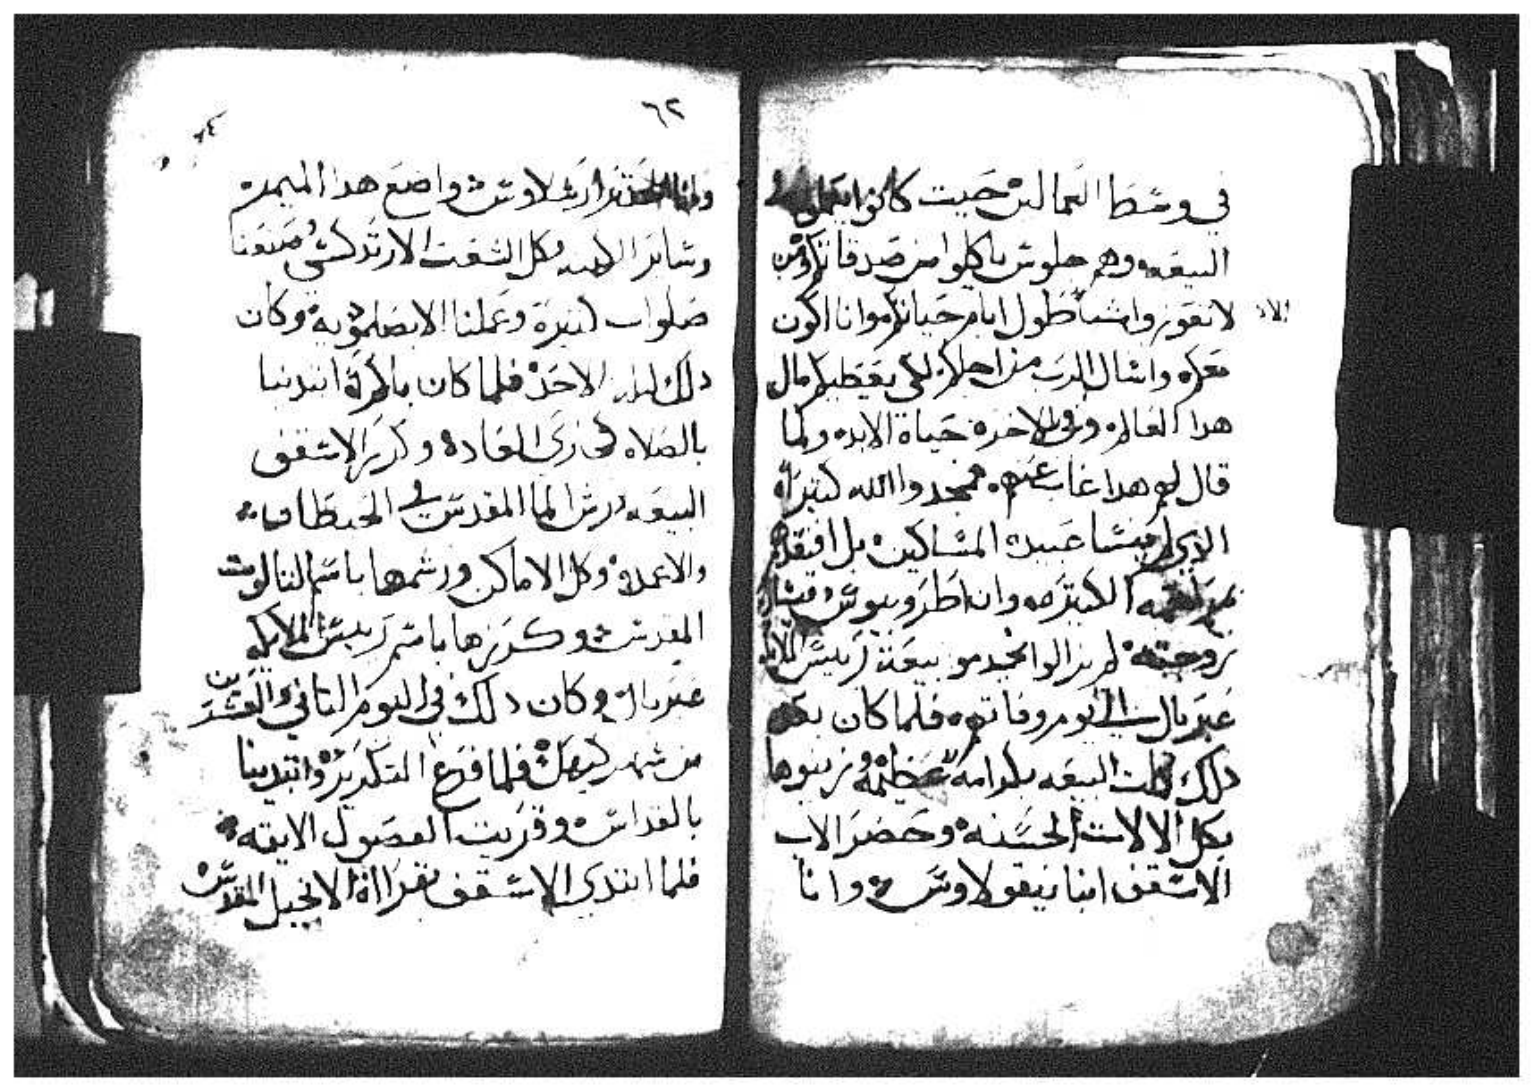 في وسط العمالين حيت كانوا يعملوا في
البيعه وهم جلوس ياكلوا من صدقاتكم ومن
الان
لا تعوزوا شيا طول ايام حياتكم وانا اكون
معكم واسال الرب من اجلكم لكي يعطيكم مال
هدا العالم وفي الاخره حياة الابد ولما
قال لهم هدا غاب عنهم فمجدوا الله كتيرا
الذي لم ينسا عبيده المساكين بل افتقدهم
الكتيره وان
زوجته لم يزالوا يخدمو بيعة رييس الملايكه
غبريال الي يوم وفاتهم فلما كان بعد
دلك كملت البيعه بكرامه عظيمه وزينوها
بكل الالات الحسنه وحضر الاب
الاسقف انبا نيقولاوس وانا
٦٢
ارشلاوس واضع هدا الميمر
وساير الكهنه وكل الشعب الارتدكسي وصنعنا
صلوات كتيرة وعملنا الابصلموديه وكان
دلك الاحد فلما كان باكرا ابتدينا
بالصلاه كجاري العاده وكرز الاسقف
البيعه ورش الما المقدس في الحيطان
والاعمده وكل الاماكن ورشمها باسم التالوت
المقدس وكرزها باسم رييس الملايكه
غبريال وكان دلك في اليوم التاني والعشرين
من شهر كيهك فلما فرغ التكريز وابتدينا
بالقداس وقريت الفصول الايقه
فلما ابتدي الاسقف بقراأة الانجيل المقدس